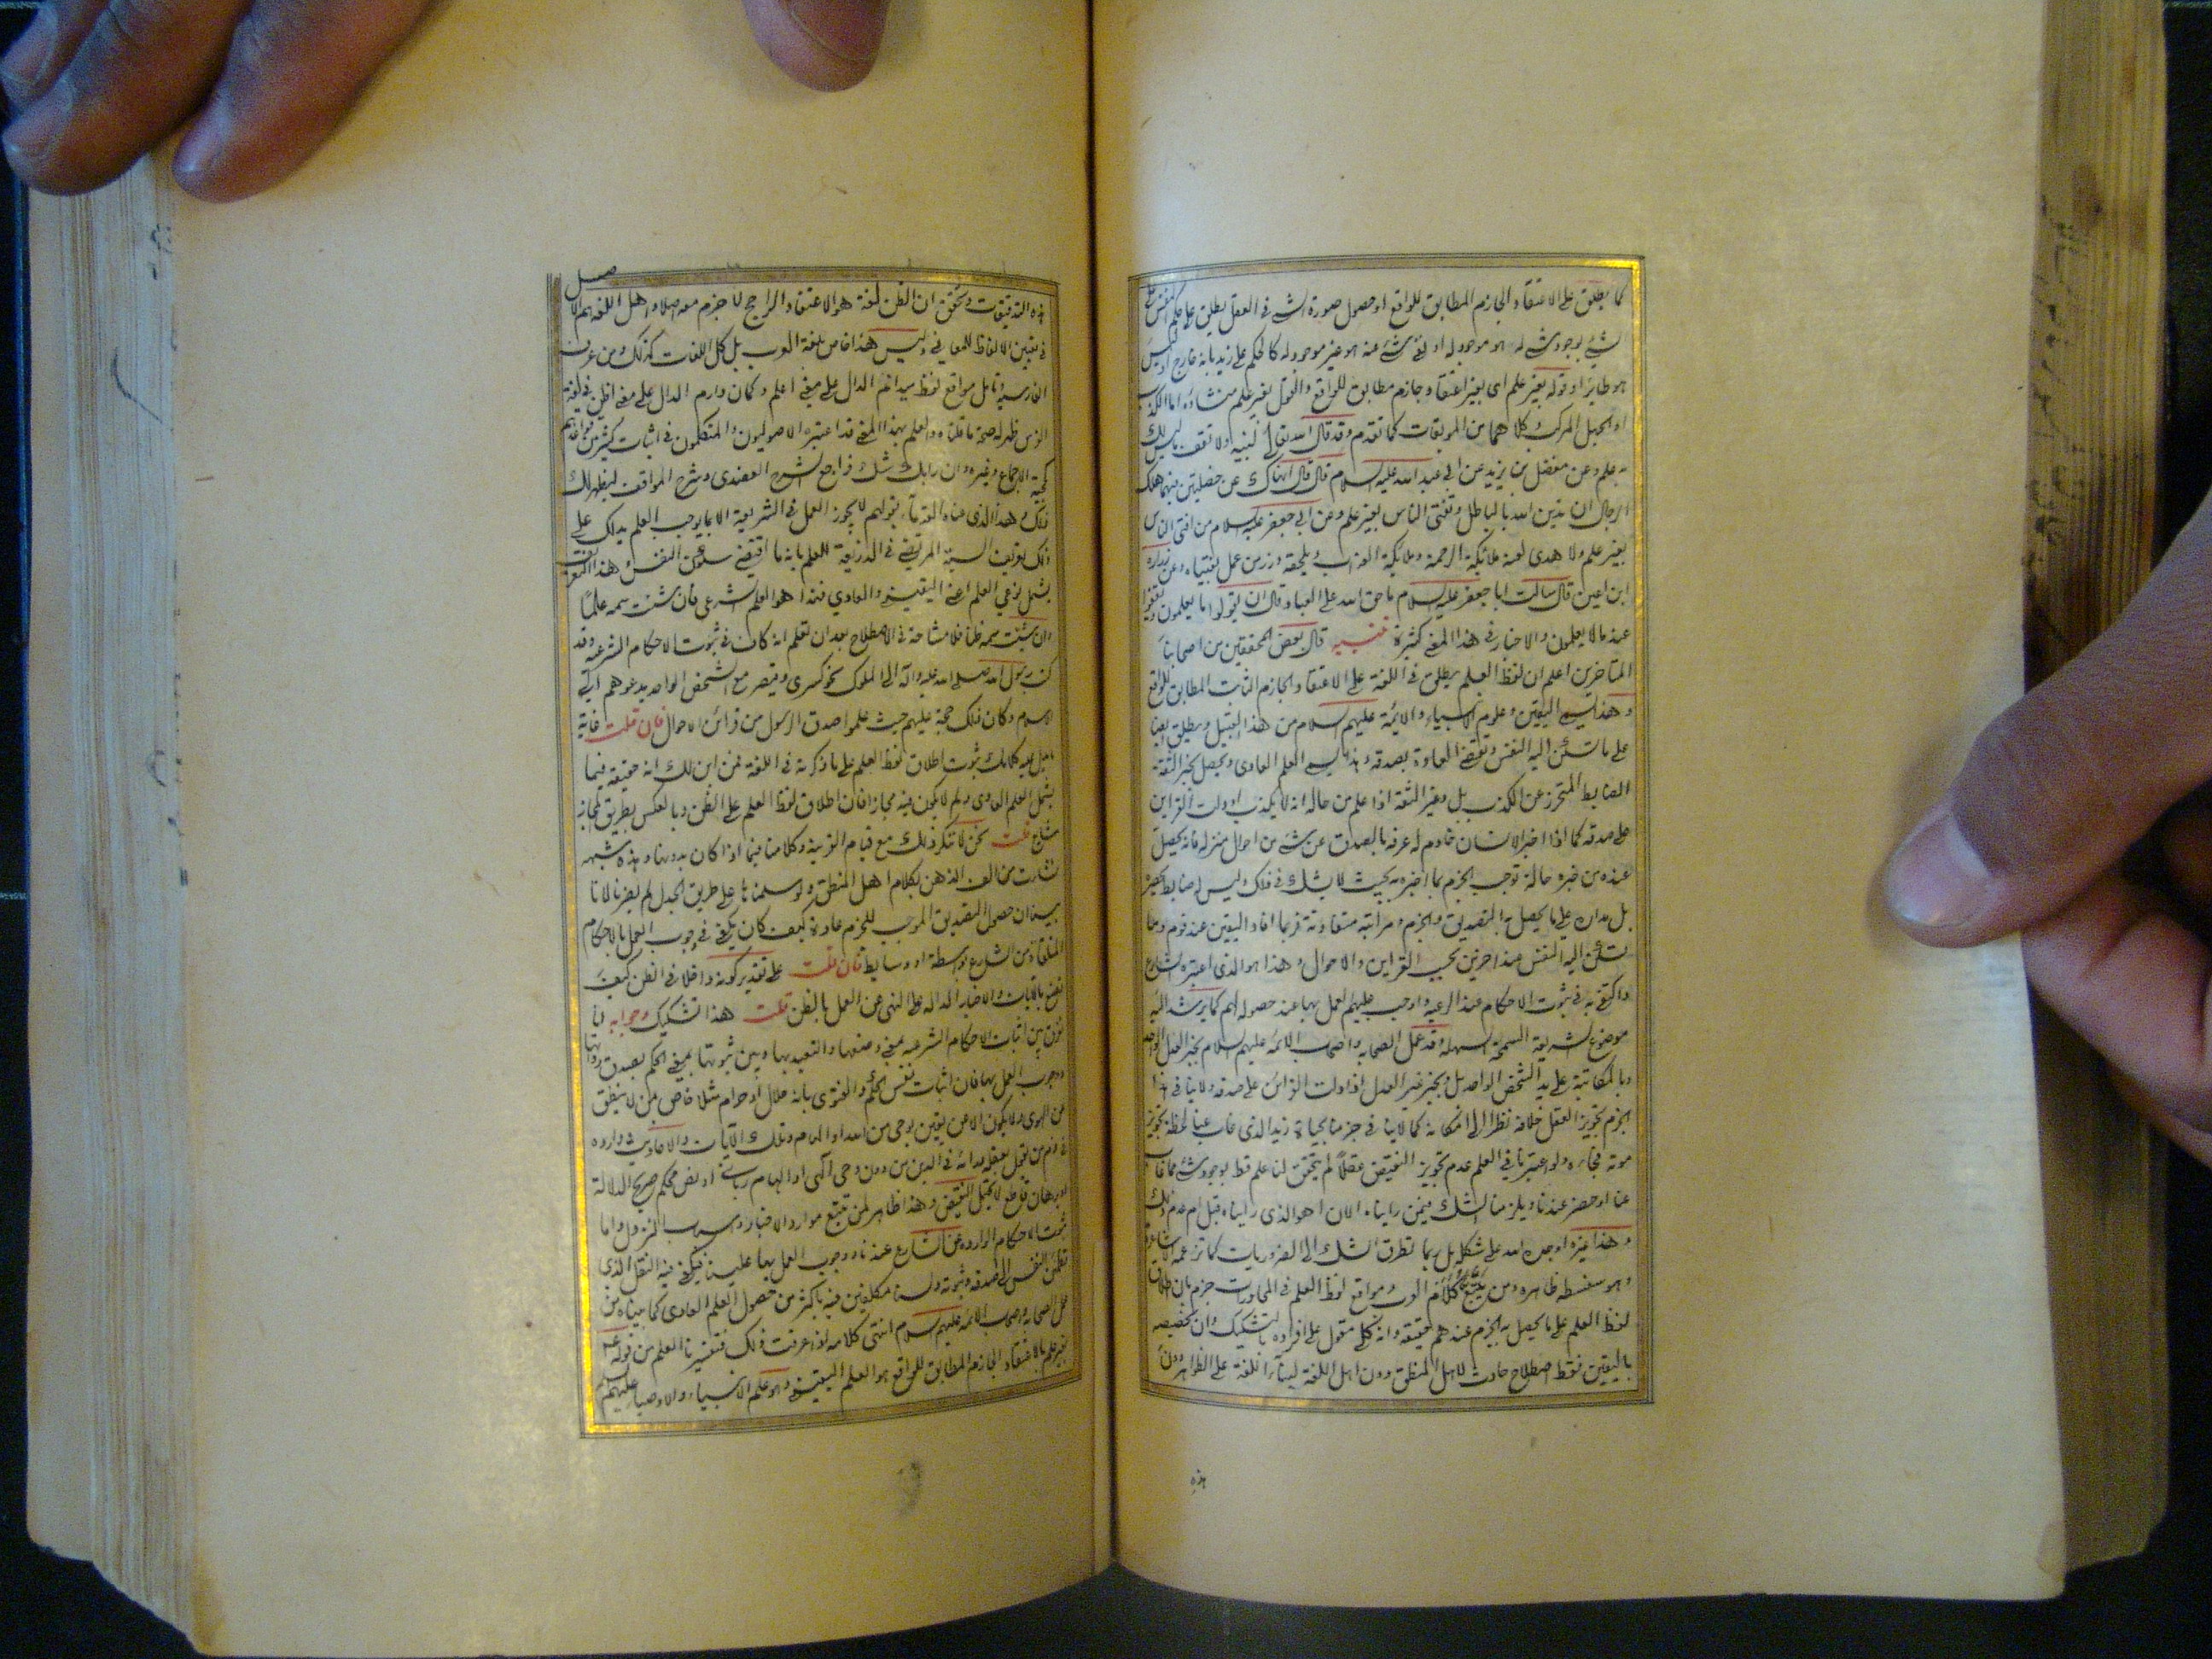 كما يطلق على الاعتقاد الجازم المطابق للواقع او حصول صورة الشئ فى العقل يطلق على حكم النفس على
الشئ بوجود شئ له هو موجود له او نفى شئ عنه هو غير موجود له كالحكم على زيد بانه خارج او ليس
هو طايرا وقوله بغير علم اى بغير اعتقاد جازم مطابق للواقع والقول بغير علم منشاؤه اما الكذب
او الجهل المركب وكلاهما من الموبقات كما تقدم وقد قال الله تعالى لنبيه ولا تقف ما ليس لك
به علم وعن مفضل بن يزيد عن ابى عبد الله عليه السلام قال قال انهاك عن خصلتين فيهما هلك
الرجال ان تدين الله بالباطل وتفتى الناس بغير علم وعن ابى جعفر عليه السلام من افتى الناس
بغير علم ولا هدى لعنه ملائكة الرحمة وملائكة العذاب ويلحقه وزر من عمل بفتياه وعن زرارة
ابن اعين قال سالت ابا جعفر عليه السلام ما حق الله على العباد قال ان يقولوا ما يعلمون ويقفوا
عند ما لا يعلمون والاخبار فى هذا المعنى كثيرة تنبيه قال بعض المحققين من اصحابنا
المتاخرين اعلم ان لفظ العلم يطلق فى اللغة على الاعتقاد الجازم الثابت المطابق للواقع
وهذا يسمى اليقين وعلوم الانبياء والائمة عليهم السلام من هذا القبيل ويطلق ايضا
على ما تسكن اليه النفس وتقضى العادة بصدقه وهذا يسمى العلم العادى ويحصل بخبر الثقة
الضابط المتحرز عن الكذب بل وغير الثقة اذا علم من حاله انه لا يكذب او دلت القراين
على صدقه كما اذا اخبر الانسان خادم له عرفه بالصدق عن شئ من احوال منزله فانه يحصل
عنده من خبره حالة توجب الجزم بما اخبره به بحيث لا يشك فى ذلك وليس له ضابط يحصره
بل مداره على ما يحصل به التصديق والجزم ومراتبه متفاوتة فربما افاد اليقين عند قوم وما
تسكن اليه النفس عند اخرين بحسب القراين والاحوال وهذا هو الذى اعتبره الشارع
واكتفى به فى ثبوت الاحكام عند الرعية واوجب عليهم العمل بها عند حصوله لهم كما يرشد اليه
موضوع الشريعة السمحة السهلة وقد عمل الصحابه واصحاب الائمة عليهم السلام بخبر العدل الواحد
وبالمكاتبة على يد الشخص الواحد بل وبخبر غير العدل اذا دلت القراين على صدقه ولا ينافى هذا
الجزم تجويز العقل خلافه نظرا الى امكانه كما لا ينافى جزمنا بحياة زيد الذى غاب عنا لحظة تجويز
موته فجاءه ولو اعتبرنا فى العلم عدم تجويز النقيض عقلا لم يتحقق لنا علم قط بوجود شئ مما غاب
عنا او حضر عندنا ويلزمنا الشك فيمن رايناه الان اهو الذى رايناه قبل ام عدم ذلك
وهذا غيره اوجده الله على شكله بل ربما تطرق الشك الى الضروريات كما تزعمه الاشاعرة
وهو سفسطة ظاهره ومن تتبع كلام العرب ومواقع لفظ العلم فى المحاورات جزم بان اطلاق
لفظ العلم على ما يحصل به الجزم عندهم حقيقة وانه كلى مقول على افراده بالتشكيك وان تخصيصه
باليقين فقط اصطلاح حادث لاهل المنطق دون اهل اللغة لبناء اللغة على الظواهر دون
هذه
هذه التدقيقات وتحقق ان الظن لغة هو الاعتقاد الراجح لا جزم معه اصلا واهل اللغة هم الاصل
فى تعيين الالفاظ للمعانى وليس هذا خاص بلغة العرب بل كل اللغات كذلك ومن عرف
الفارسية وتامل مواقع لفظ ميدانم الدال على معنى اعلم وكمان دارم الدال على معنى اظن فى لغة
الفرس ظهر له صحة ما قلناه والعلم بهذا المعنى قد اعتبره الاصوليون والمتكلمون فى اثبات كثير من قواعدهم
كحجية الاجماع وغيره وان رابك شك فراجع الشرح العضدى وشرح المواقف ليظهر لك
ذلك وهذا الذى عناه القدماء بقولهم لا يجوز العمل فى الشريعة الا بما يوجب العلم يدلك على
ذلك تعريف السيد المرتضى فى الذريعة للعلم بانه ما اقتضى سكون النفس وهذا التعريف
يشمل نوعى العلم اعنى اليقينى والعادى فهذا هو العلم الشرعى فان شئت سمه علما
وان شئت سمه ظنا فلا مشاحة فى الاصطلاح بعد ان تعلم انه كاف فى ثبوت الاحكام الشرعية وقد
كتب رسول الله صلى الله عليه وآله الى الملوك نحو كسرى وقيصر مع الشخص الواحد يدعوهم الى
الاسلام وكان ذلك حجة عليهم حيث علموا صدق الرسول من قرائن الاحوال فان قلت غاية
ما دل عليه كلامك ثبوت اطلاق لفظ العلم على ما ذكرته فى اللغة فمن اين لك انه حقيقة فيما
يشمل العلم العادى ولم لا يكون فيه مجازا فان اطلاق لفظ العلم على الظن وبالعكس بطريق المجاز
شايع قلت نحن لا ننكر ذلك مع قيام القرينة وكلامنا فيما اذا كان بدونها وهذه شبهه
نشات من الف الذهن بكلام اهل المنطق ولو سلمناها على طريق الجدل لم يضرنا لانا
بينا ان حصول التصديق الموجب للجزم عادة كيف كان يكفى فى وجوب العمل بالاحكام
المتلقاة من الشارع بواسطة او وسايط فان قلت على تقدير كونه داخلا فى الظن كيف
نصنع بالايات والاخبار الداله على النهى عن العمل بالظن قلت هذا تشكيك وجوابه انا
نفرق بين اثبات الاحكام الشرعيه بمعنى وضعها والتعبد بها وبين ثبوتها بمعنى الحكم بصدق رواتها
ووجوب العمل بها فان اثبات نفس الحكم والفتوى بانه حلال او حرام مثلا خاص بمن لا ينطق
عن الهوى ولا يكون الا عن يقين بوحى من الله او الهام وتلك الايات والاحاديث وارده
فى ذم من يقول بعقله برائه فى الدين من دون وحى الهى او الهام ربانى او نص محكم صريح الدلالة
او برهان قاطع لا يحتمل النقيض وهذا ظاهر لمن تتبع موارد الاخبار واسباب النزول واما
ثبوت الاحكام الوارده عن الشارع عندنا ووجوب العمل بها علينا فيكفى فيه النقل الذى
تطمئن النفس الى صدقه وثبوته ولسنا مكلفين فيه باكثر من حصول العلم العادى كما بيناه من
عمل الصحابه واصحاب الائمة عليهم السلام انتهى كلامه اذا عرفت ذلك فتفسيرنا العلم من قوله
بغير علم بالاعتقاد الجازم المطابق للواقع هو العلم اليقينى وهو علم الانبياء والاوصياء عليهم